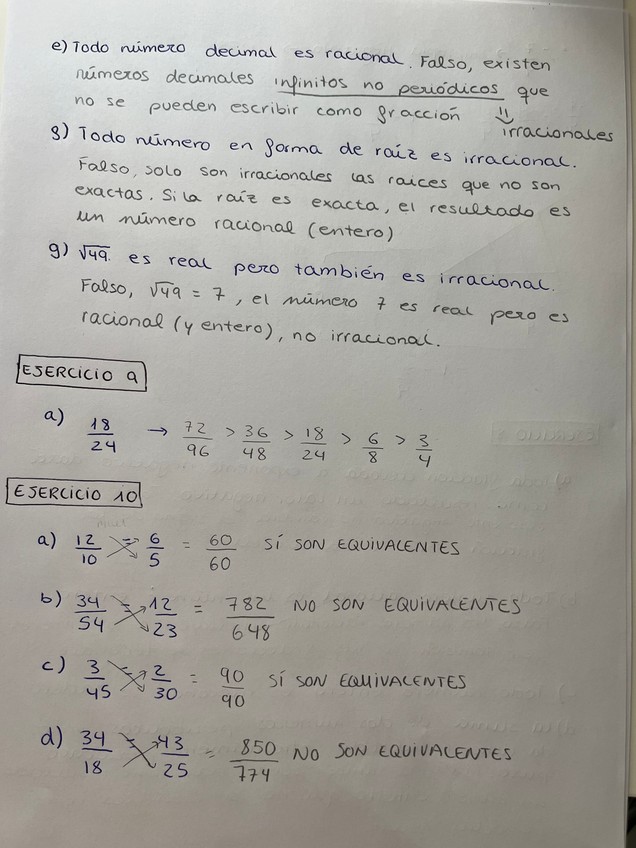 e) Todo número decimal es racional. Falso, existen
números decimales infinitos no periódicos que
no se pueden escribir como fracción ⇓
irracionales
g) Todo número en forma de raíz es irracional.
Falso, solo son irracionales las raíces que no son
exactas. Si la raíz es exacta, el resultado es
un número racional (entero)
g) √49. es real pero también es irracional.
Falso, √49 = 7, el número 7 es real pero es
racional (y entero), no irracional.
EJERCICIO 9
a) 18/24 → 72/96 > 36/48 > 18/24 > 6/8 > 3/4
EJERCICIO 10
a) 12/10 = 6/5 = 60/60 SÍ SON EQUIVALENTES
b) 34/54 = 12/23 = 782/648 NO SON EQUIVALENTES
c) 3/45 = 2/30 = 90/90 SÍ SON EQUIVALENTES
d) 34/18 = 43/25 = 850/774 NO SON EQUIVALENTES